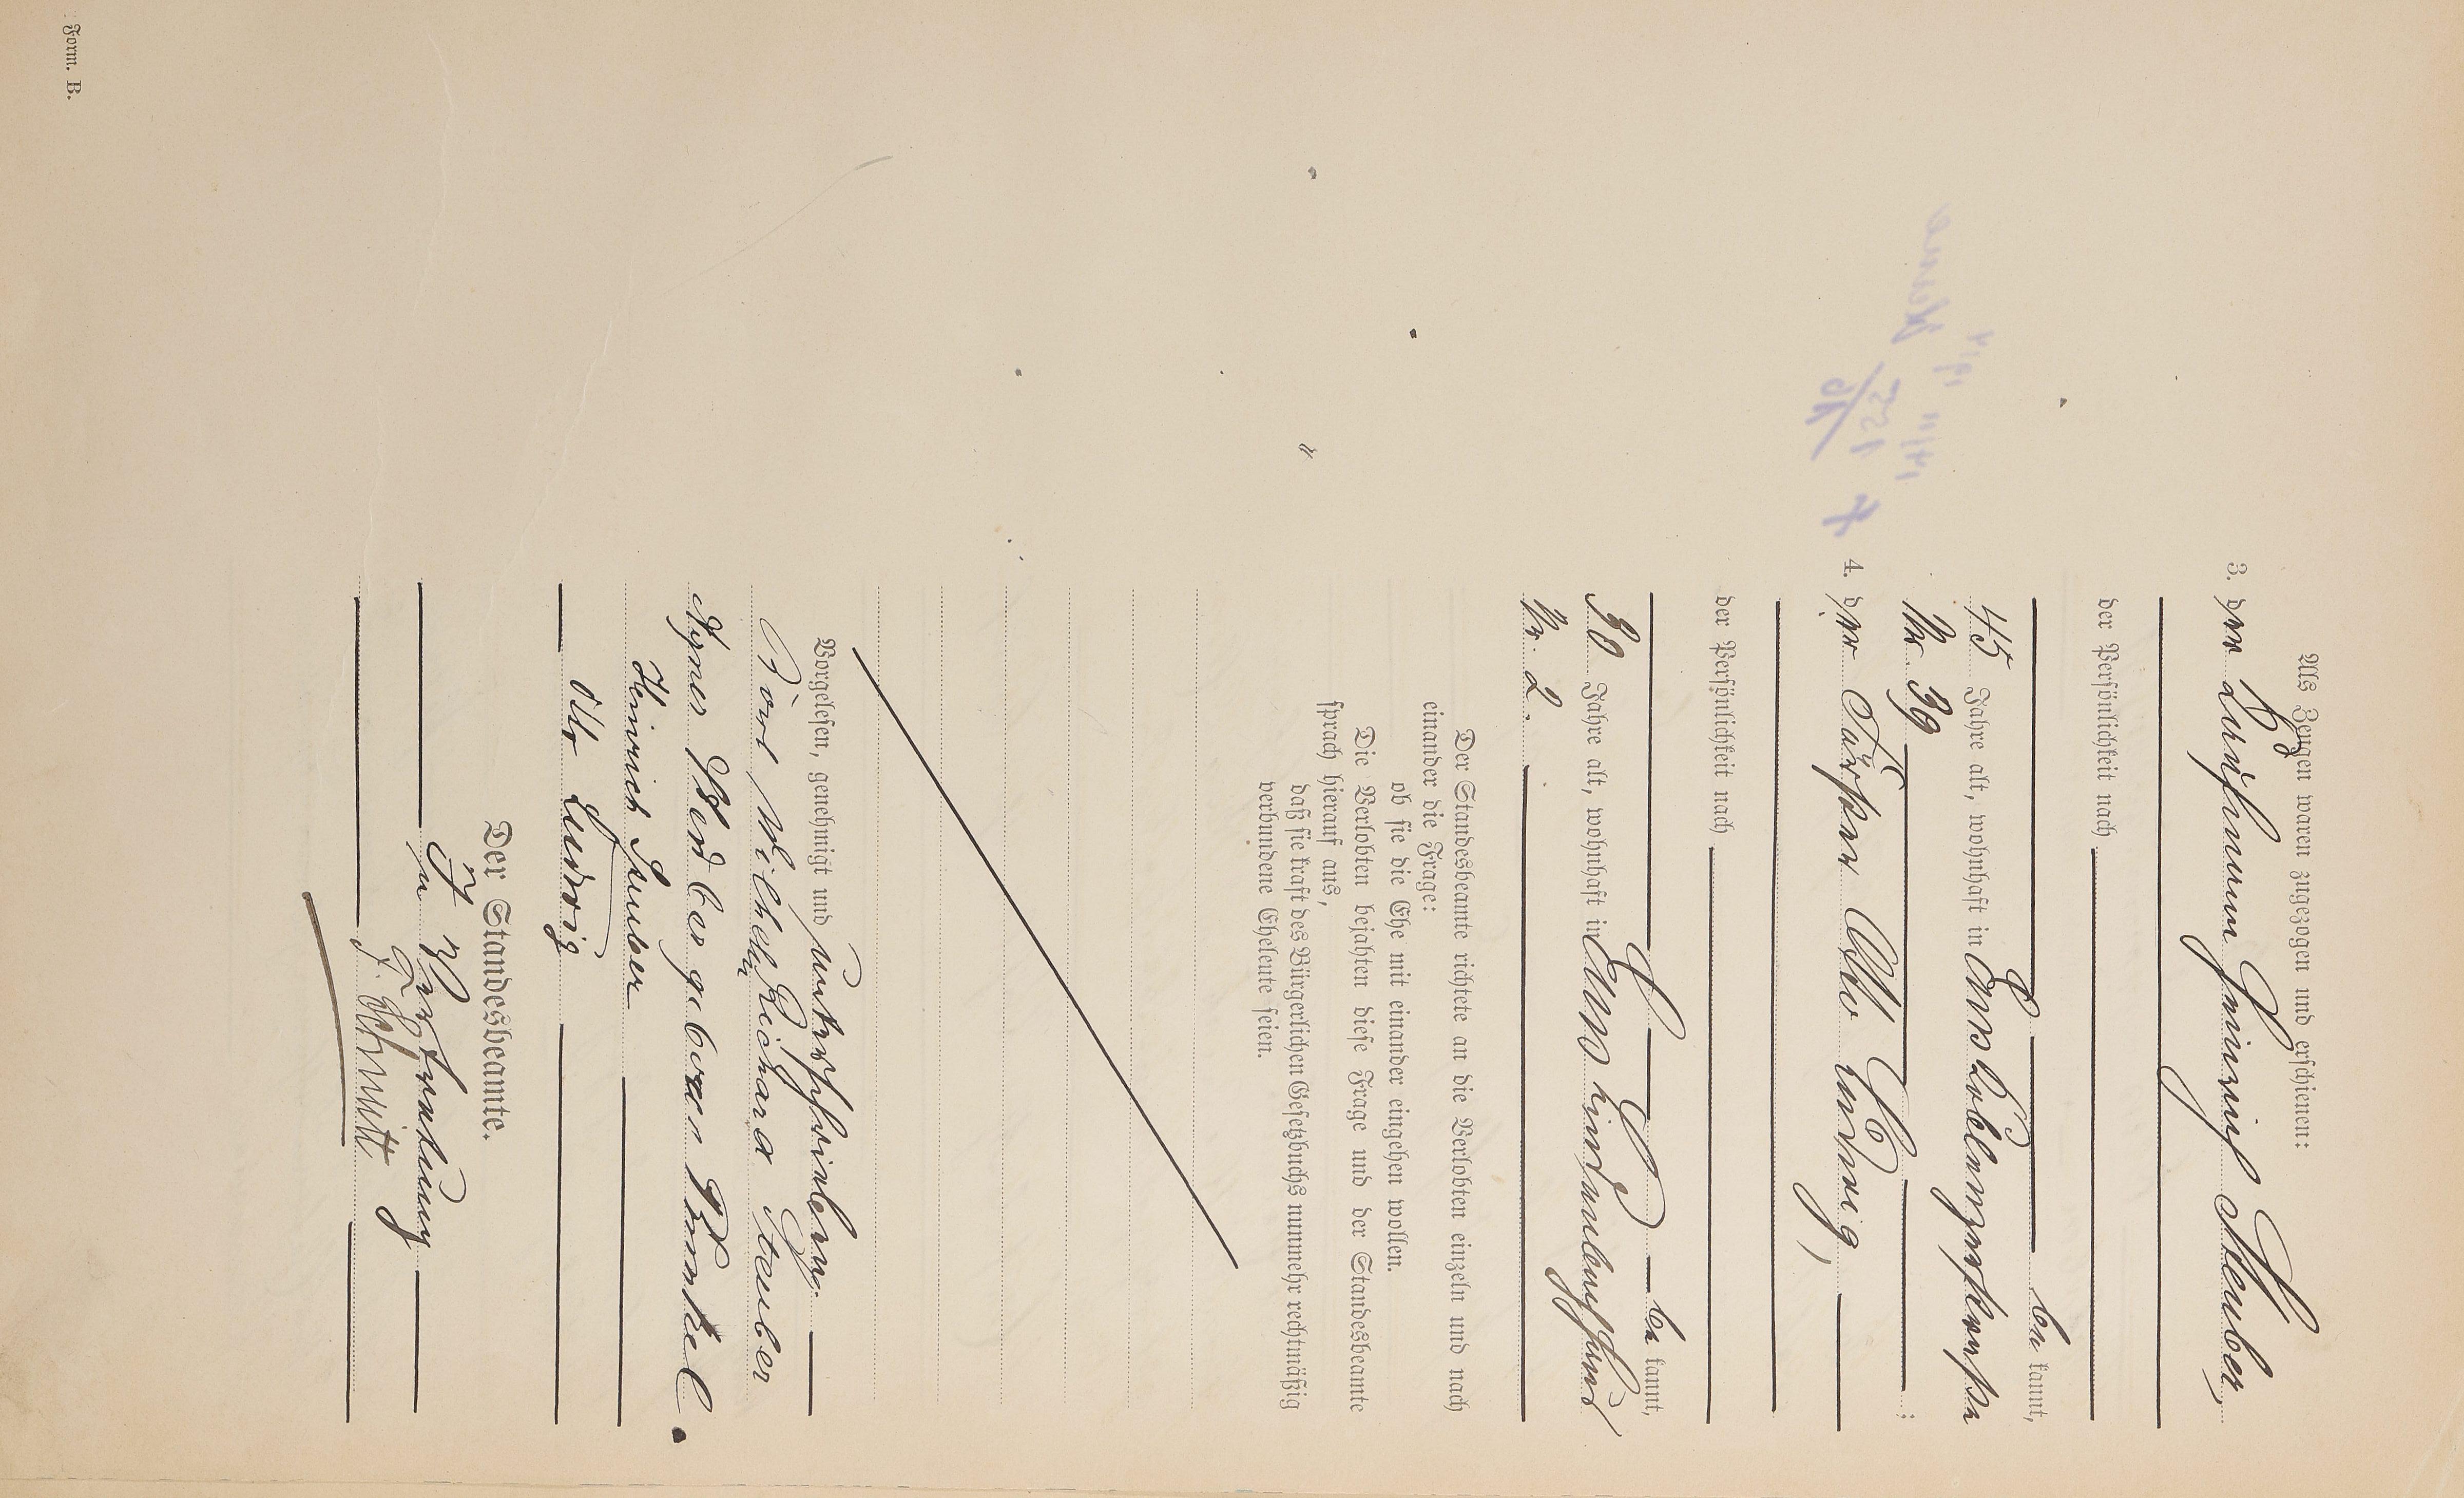 Als Zeugen waren zugezogen und erschienen:
3. der Kaufmann Heinrich Steuber,
der Persönlichkeit nach
be kannt,
45 Jahre alt, wohnhaft in Ems Koblenzerstraße
Nr. 39 ;
4. der Otto Ludwig,
der Persönlichkeit nach
be kannt,
30 Jahre alt, wohnhaft in Ems
Nr. 2.
Der Standesbeamte richtete an die Verlobten einzeln und nach
einander die Frage:
ob sie die Ehe mit einander eingehen wollen.
Die Verlobten bejahten diese Frage und der Standesbeamte
sprach hierauf aus,
daß sie kraft des Bürgerlichen Gesetzbuchs nunmehr rechtmäßig
verbundene Eheleute seien.
Vorgelesen, genehmigt und unterschrieben.
Wilhelm Richard Steuber
Agnes Steuber geboren Kunkel.
Heinrich Steuber
Otto Ludwig
Der Standesbeamte.
In Vertretung
F. Schmitt
Form. B.